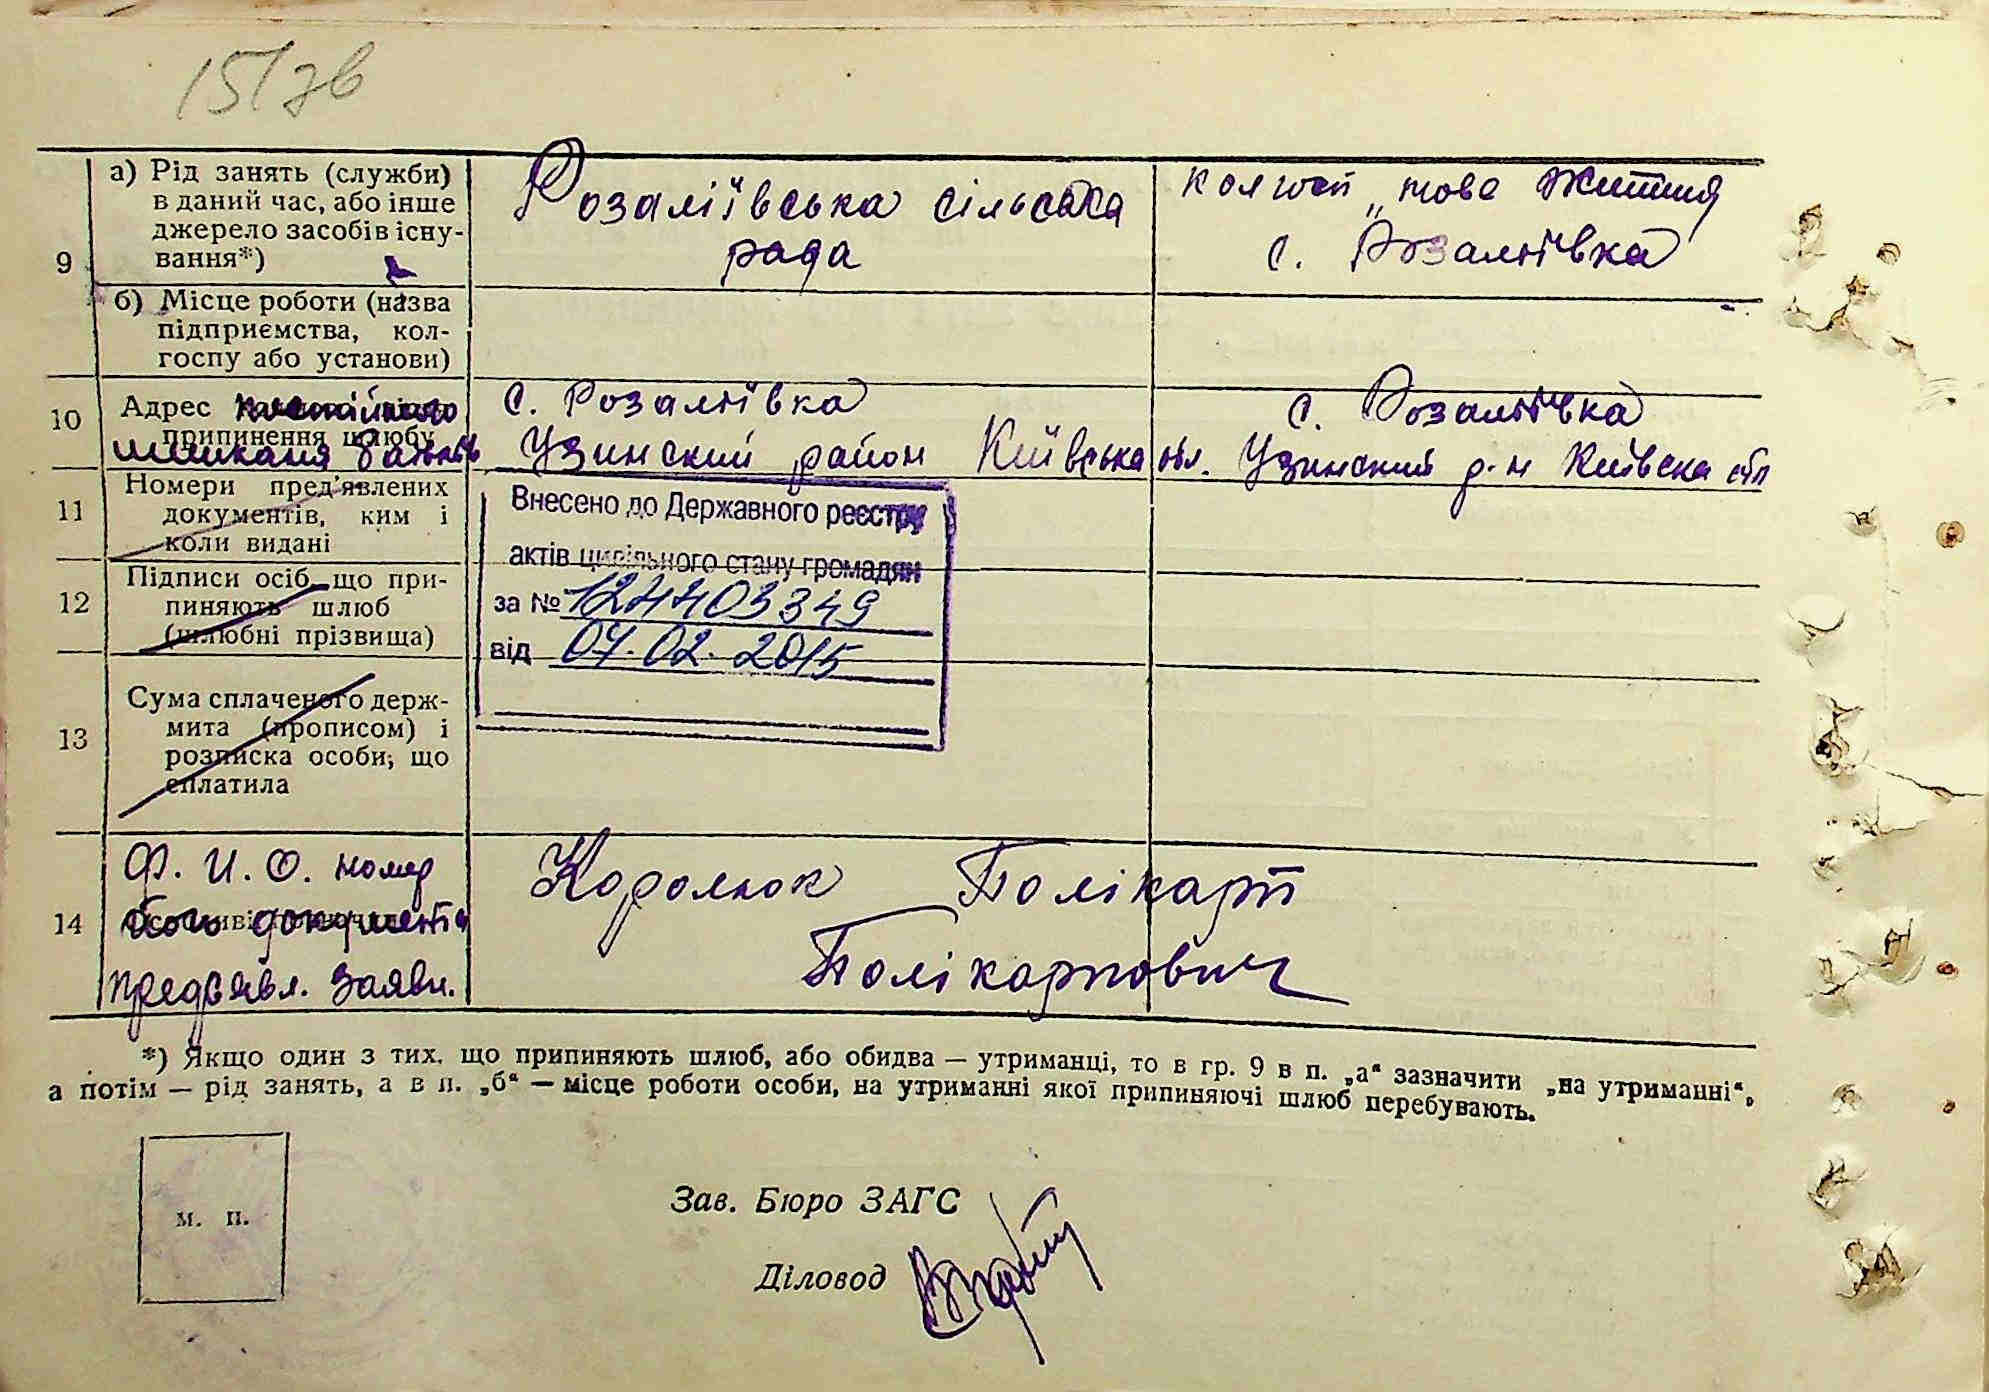 15/зв
9
а) Рід занять (служби)
в даний час, або інше
джерело засобів існу-
вання*)
Розаліївська сільська
рада
колгосп „нове Життя
с. Розаліївка
б) Місце роботи (назва
підприємства, кол-
госпу або установи)
10
Адрес постійного
припинення шлюбу
с. Розаліївка
Узинский район Київська обл.
с. Розаліївка
Узинский р-н Київска обл
11
Номери пред'явлених
документів, ким і
коли видані
Внесено до Державного реєстру
актів цивільного стану громадян
за № 124403349
від 07.02.2015
12
Підписи осіб, що при-
пиняють шлюб
(шлюбні прізвища)
13
Сума сплаченого держ-
мита (прописом) і
розписка особи, що
сплатила
14
Ф. И. О. номер
документів
предъявл. заявл.
Королюк Полікарп
Полікарпович
*) Якщо один з тих, що припиняють шлюб, або обидва — утриманці, то в гр. 9 в п. „а“ зазначити „на утриманні“,
а потім — рід занять, а в п. „б“ — місце роботи особи, на утриманні якої припиняючі шлюб перебувають.
м. п.
Зав. Бюро ЗАГС
Діловод